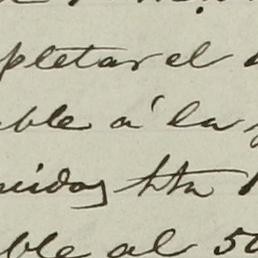 pletar el
ble á la
uidos hta
ble al 50